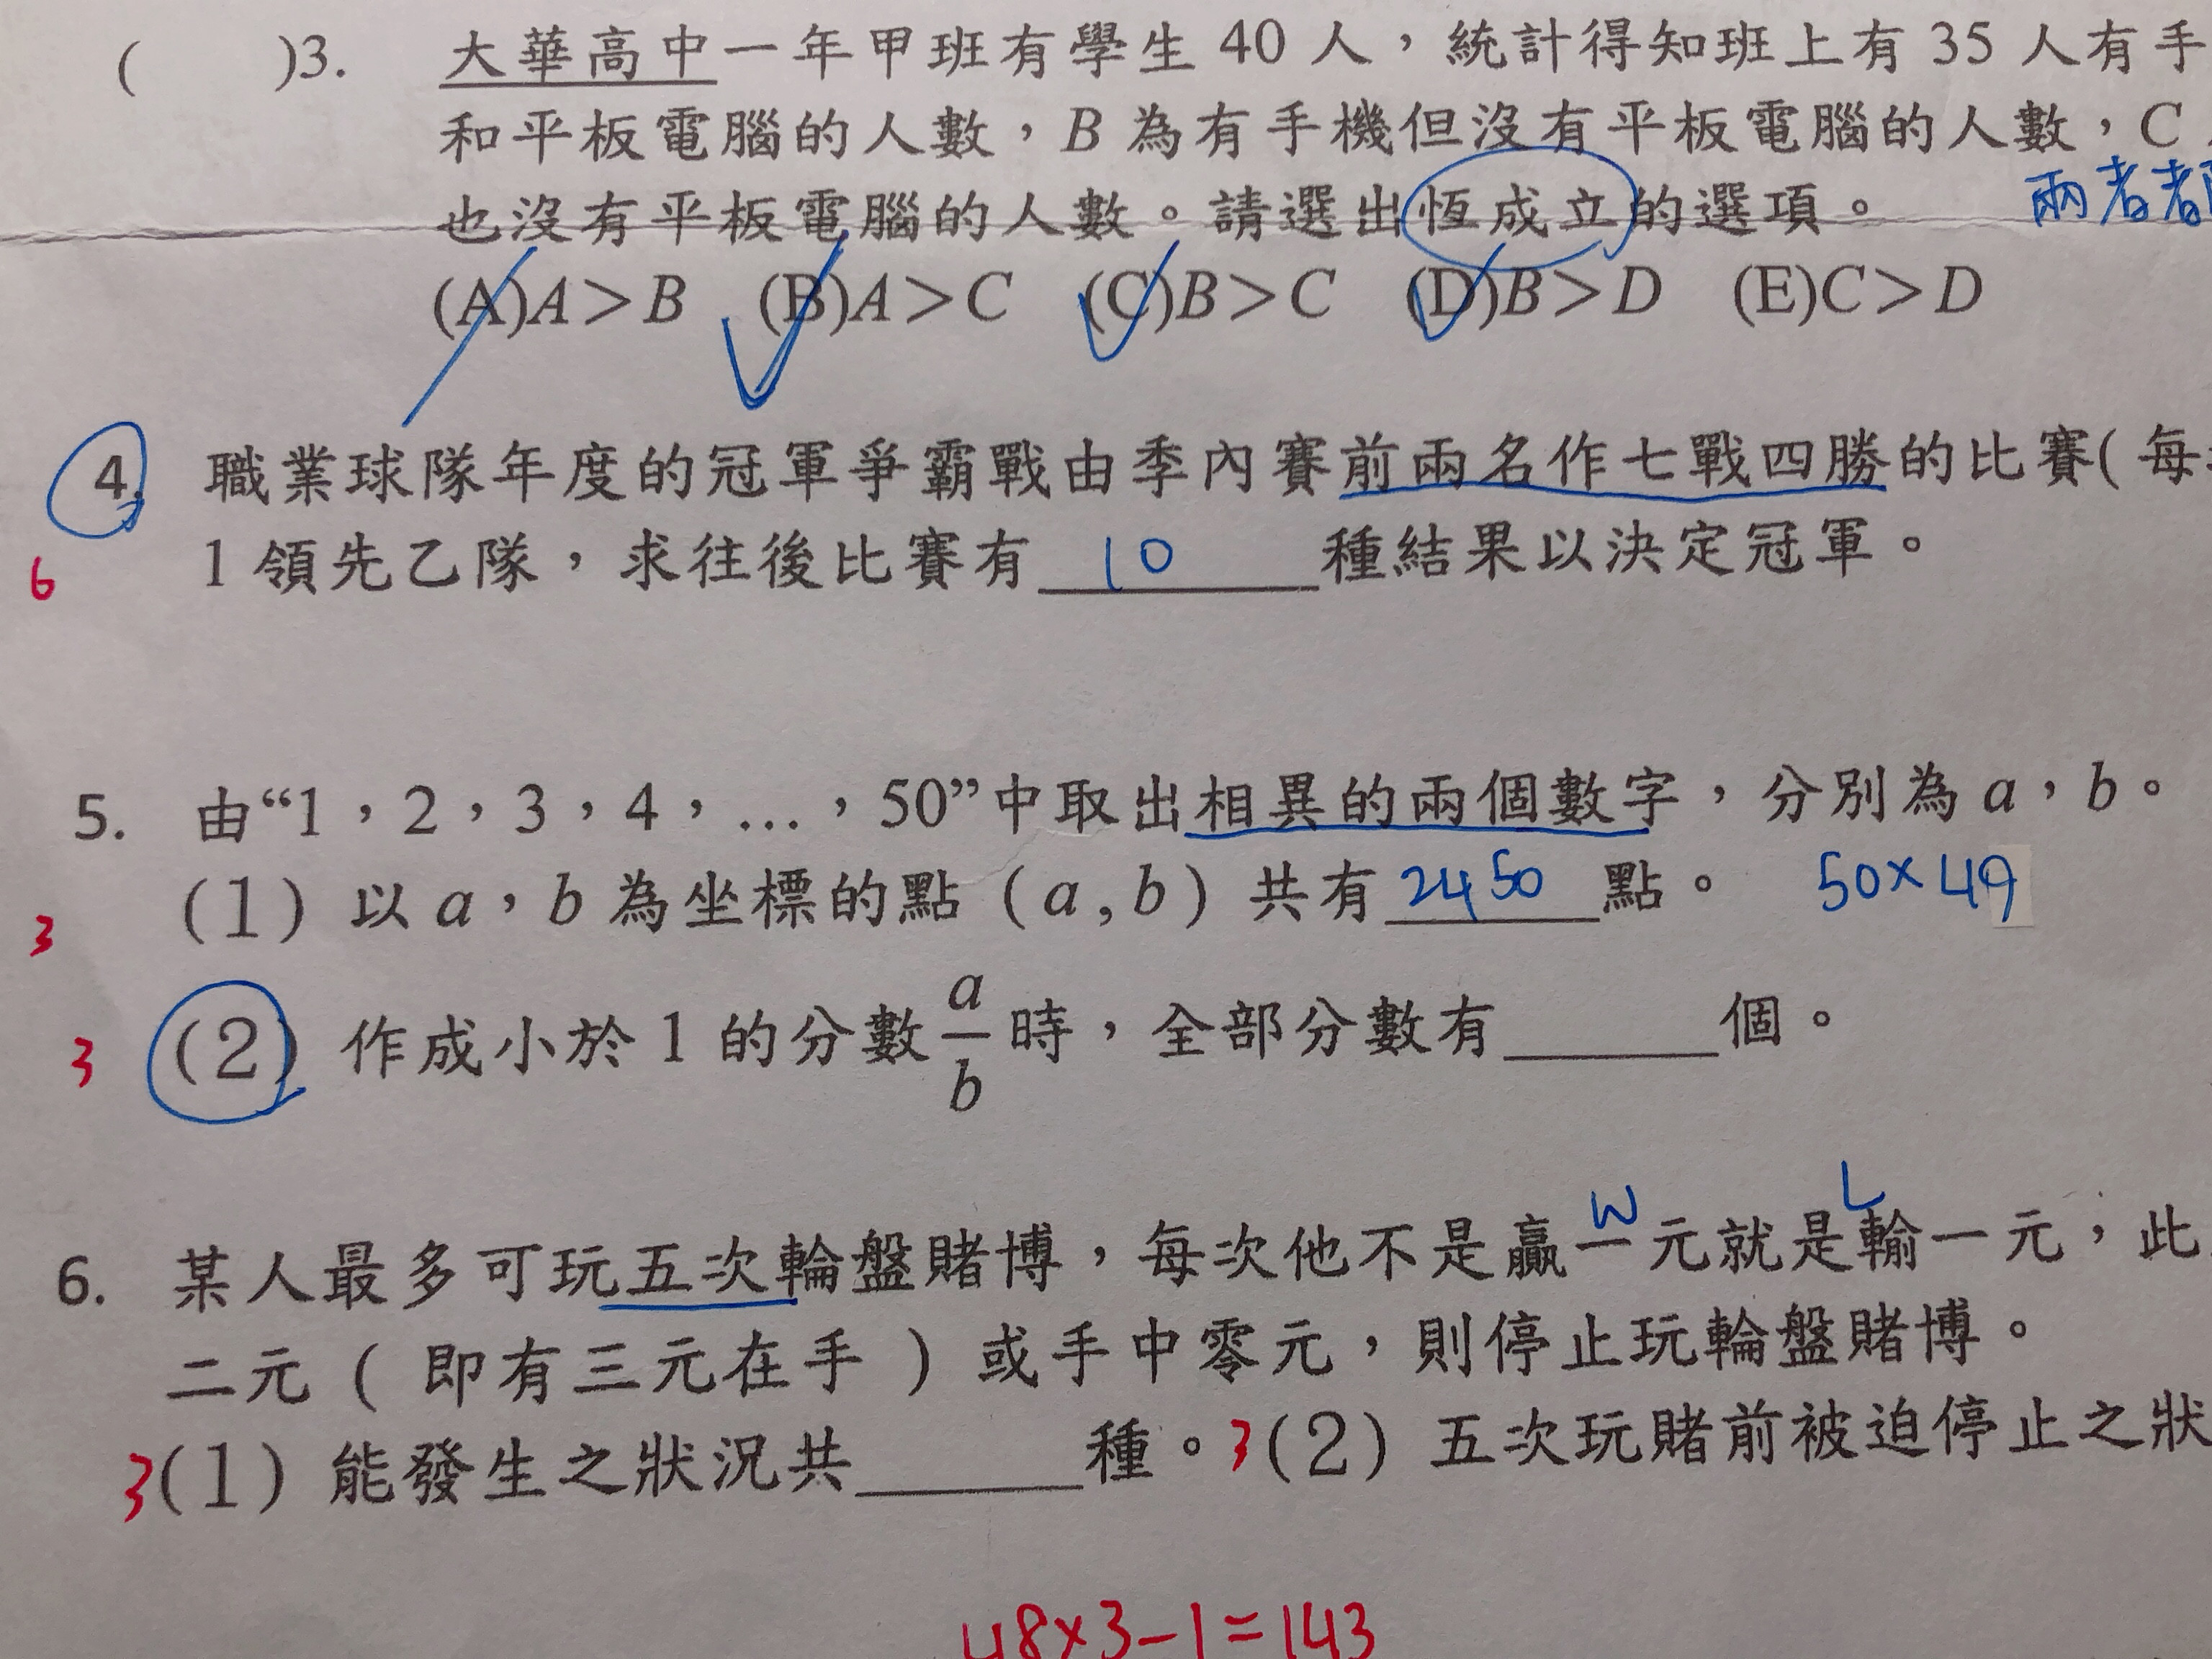 ( )3. 大華高中一年甲班有學生 40 人，統計得知班上有 35 人有手
和平板電腦的人數，B 為有手機但沒有平板電腦的人數，C
兩者者
也沒有平板電腦的人數。請選出恆成立的選項。
(A)A>B (B)A>C (C)B>C (D)B>D (E)C>D
4. 職業球隊年度的冠軍爭霸戰由季內賽前兩名作七戰四勝的比賽(每
6 1 領先乙隊，求往後比賽有 10 種結果以決定冠軍。
5. 由“1，2，3，4，…，50”中取出相異的兩個數字，分別為 a，b。
3 (1) 以 a，b 為坐標的點 (a,b) 共有 2450 點。 50×49
3 (2) 作成小於 1 的分數 a/b 時，全部分數有______個。
W L
6. 某人最多可玩五次輪盤賭博，每次他不是贏一元就是輸一元，此
二元 ( 即有三元在手 ) 或手中零元，則停止玩輪盤賭博。
3 (1) 能發生之狀況共______種。3 (2) 五次玩賭前被迫停止之狀
48×3-1=143